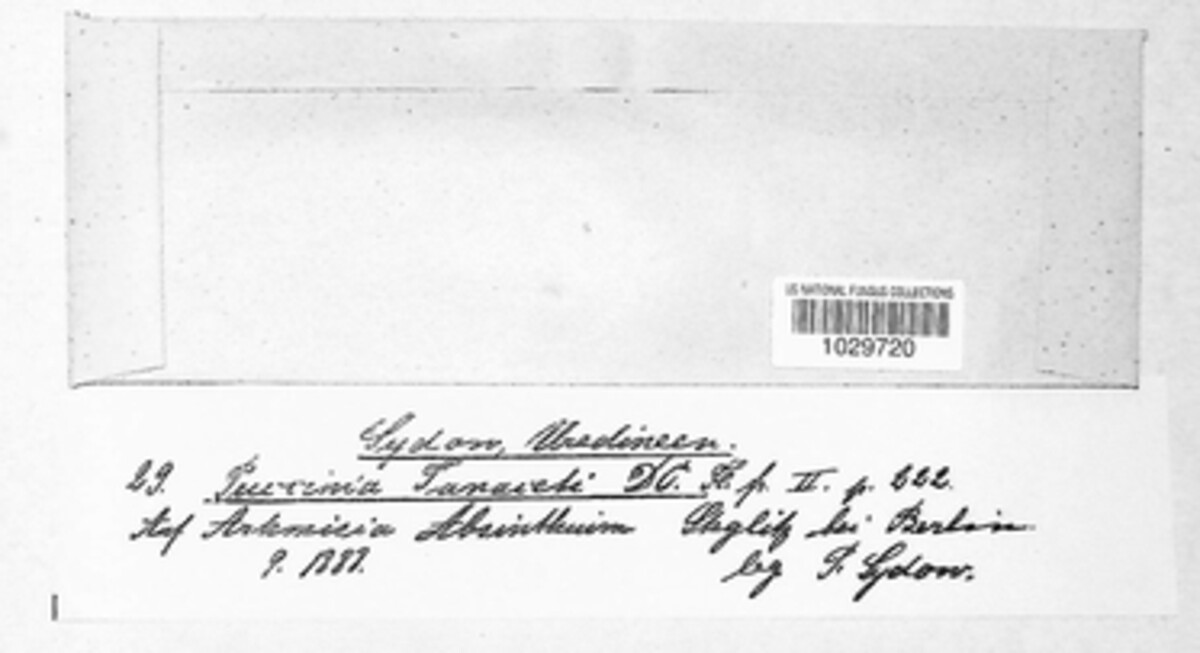 US NATIONAL FUNGUS COLLECTIONS
1029720
Sydow, Uredineen.
29. Puccinia Tanaceti DC. Fl. fr. II. p. 222.
Auf Artemisia Absinthium Steglitz bei Berlin
9. 1887.
leg P. Sydow.